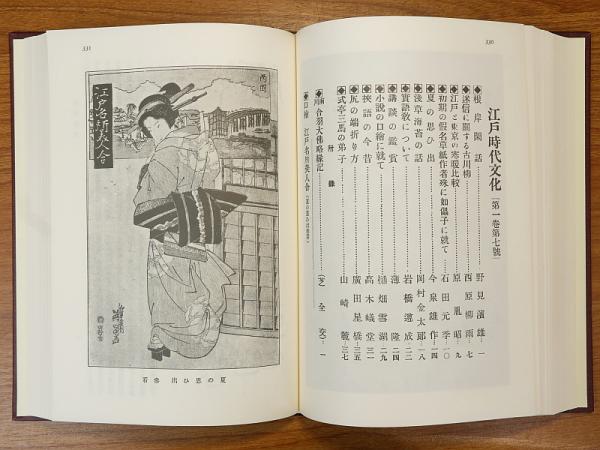 330
江戸時代文化［第一巻第七號］
◆根岸閑話………野見濱雄…一
◆迷信に關する古川柳………西原柳雨…七
◆江戸と東京の寒暖比較………原胤昭…九
◆初期の假名草紙作者殊に如儡子に就て…石田元季…一〇
◆夏の思ひ出………今泉雄作…一四
◆淺草海苔の話………岡村金太郎…一八
◆實語敎について………岩橋遵成…二二
◆講談の鑑賞………薄隆…二四
◆小說の口繪に就て………樋畑雪湖…二九
◆挾語の今昔………高木峨堂…三一
◆尻の端折り方………廣田星橋…三五
◆式亭三馬の弟子………山崎麓…三七
附錄
合羽大佛略緣記………（芝）全交…一
◆口繪 江戸名所美人合
331
江戸名所美人合
夏の思ひ出 參看